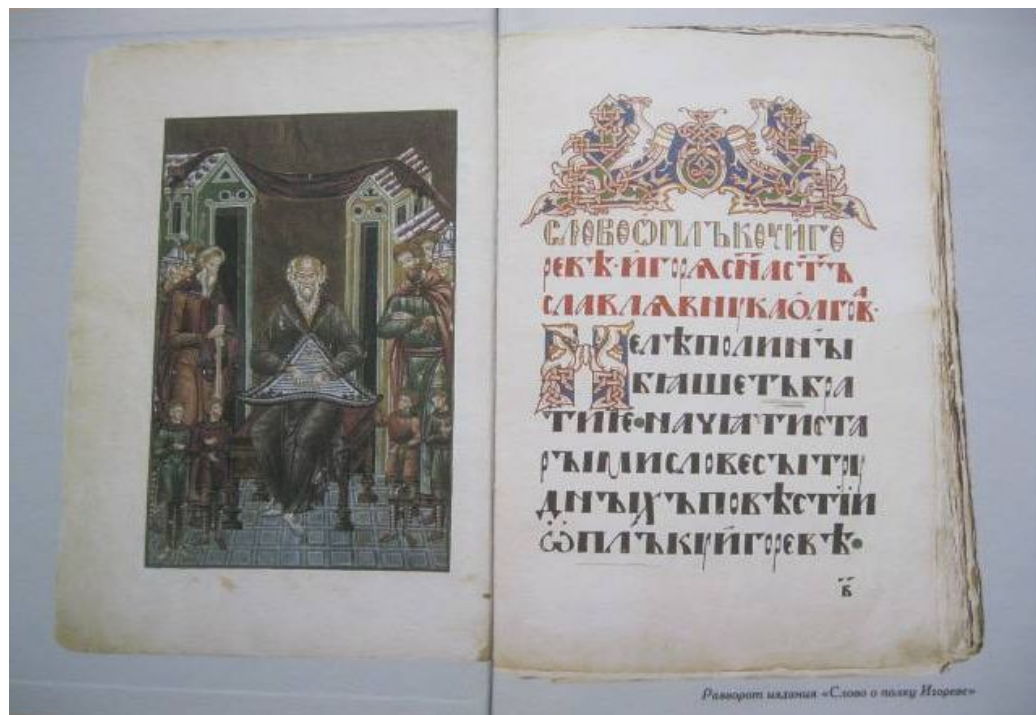 СЛОВООПЛЪКОУИГО
РЕВѢ·ИГОРѦСН҃АСТЪ
СЛАВЛѦВНꙊКАОЛГОВА·
НЕЛѢПОЛИНЫ
БѦШЕТЪБРА
ТИІЕ·НАЧѦТИСТА
РЫМИСЛОВЕСЫТРꙊ
ДНЫХЪПОВѢСТІИ
ѾПЛЪКꙊИГОРЕВѢ·
В҃
Разворот издания «Слово о полку Игореве»